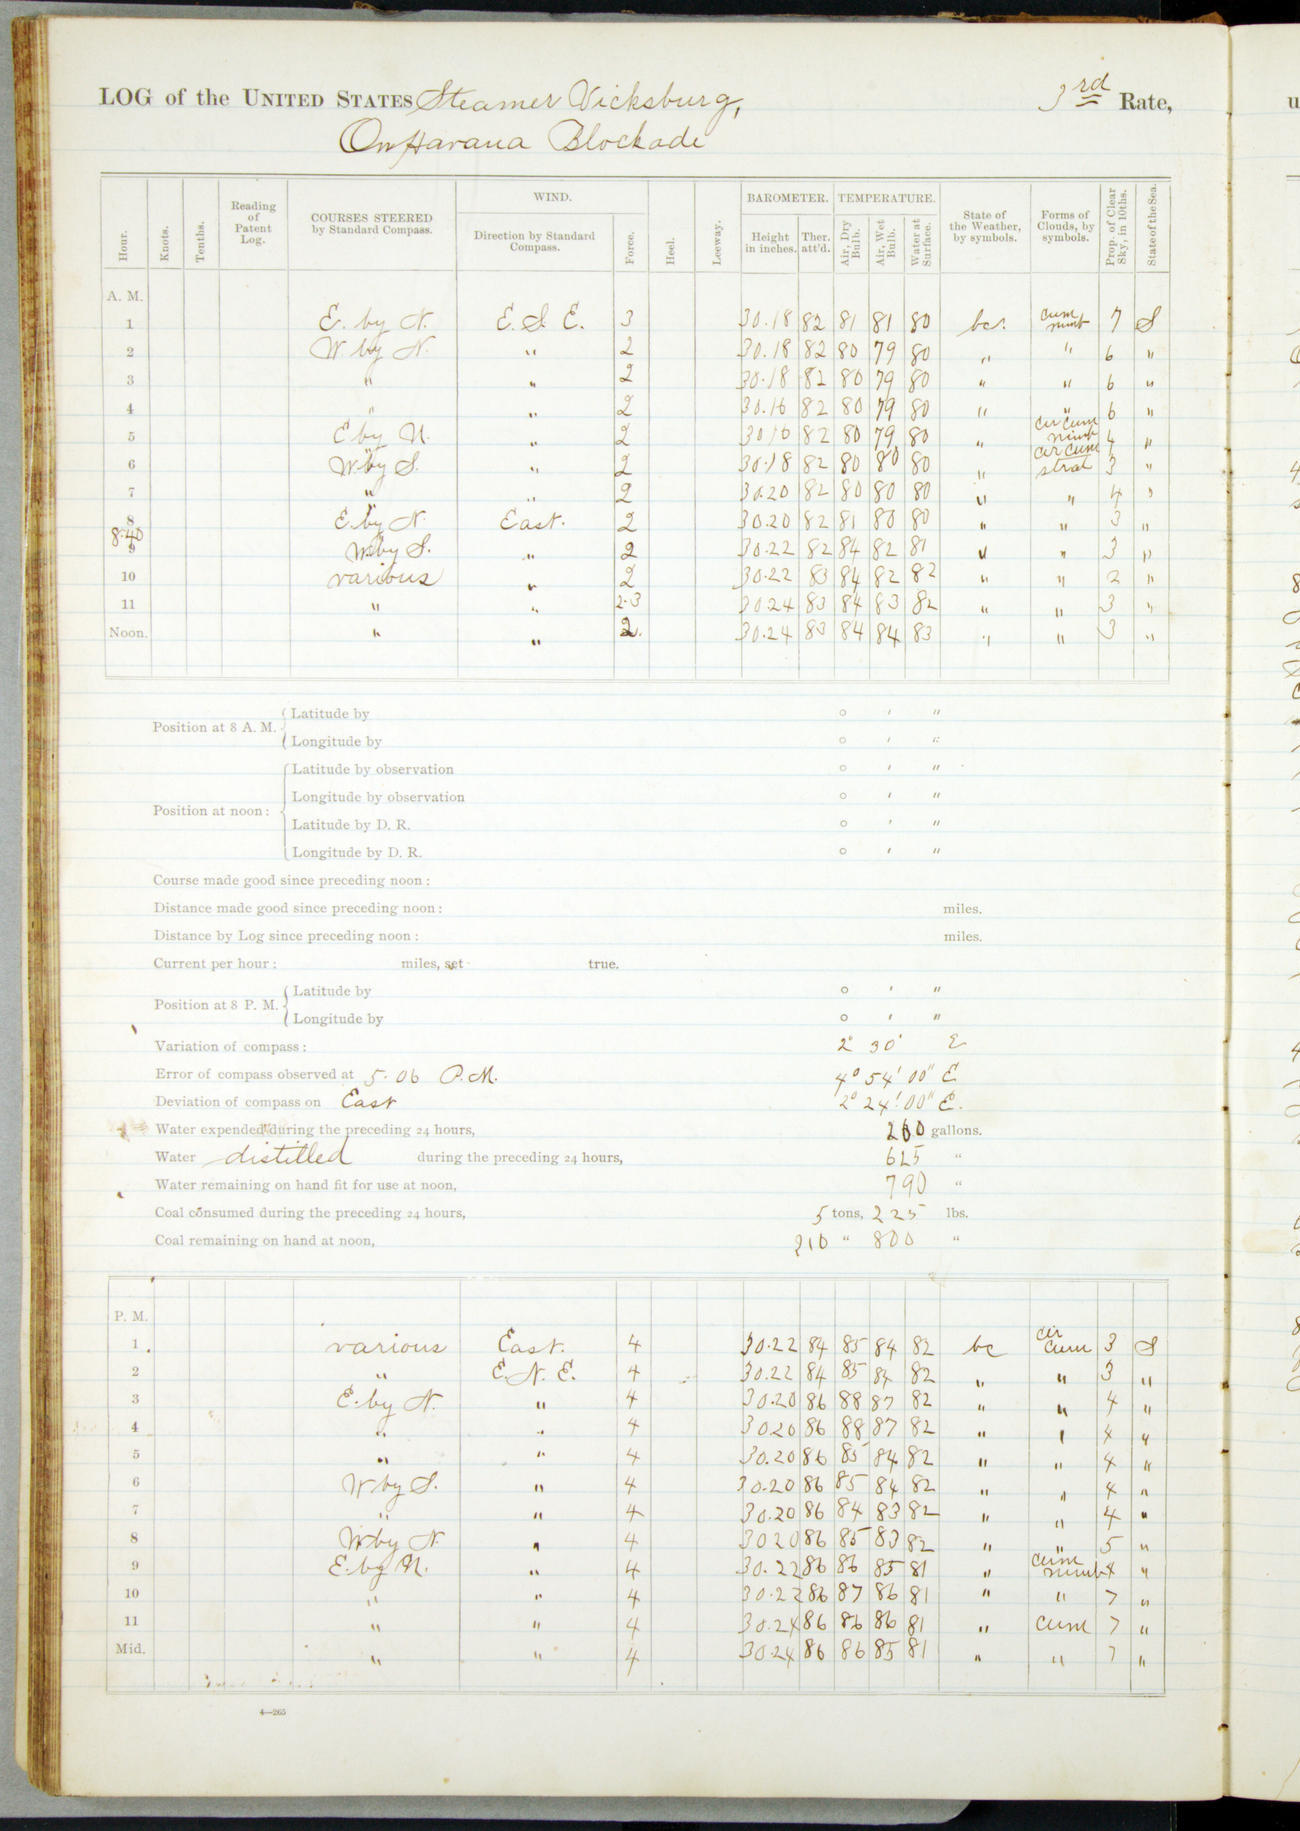 LOG of the UNITED STATES Steamer Vicksburg, 3rd Rate,
On Havana Blockade
Hour. Knots. Tenths. Reading of Patent Log. COURSES STEERED by Standard Compass. WIND. Direction by Standard Compass. Force. Heel. Leeway. BAROMETER. Height in inches. Ther. att'd. TEMPERATURE. Air, Dry Bulb. Air, Wet Bulb. Water at Surface. State of the Weather, by symbols. Forms of Clouds, by symbols. Prop. of Clear Sky, in 10ths. State of the Sea.
A. M.
1 E. by N. E. S. E. 3 30.18 82 81 81 80 bc. cum nimb 7 S
2 W. by N. " 2 30.18 82 80 79 80 " " 6 "
3 " " 2 30.18 82 80 79 80 " " 6 "
4 " " 2 30.16 82 80 79 80 " " 6 "
5 E by N. " 2 30 16 82 80 79 80 " cir cum nimb 4 "
6 W by S. " 2 30.18 82 80 80 80 " cir cum strat 3 "
7 " " 2 30.20 82 80 80 80 " " 4 "
8 E. by N. East. 2 30.20 82 81 80 80 " " 3 "
8.40
9 W by S. " 2 30.22 82 84 82 81 " " 3 "
10 various " 2 30.22 83 84 82 82 " " 2 "
11 " " 2.3 30 24 83 84 83 82 " " 3 "
Noon. " " 2. 30.24 83 84 84 83 " " 3 "
Position at 8 A. M. Latitude by ° ′ ″
Longitude by ° ′ ″
Latitude by observation ° ′ ″
Longitude by observation ° ′ ″
Position at noon:
Latitude by D. R. ° ′ ″
Longitude by D. R. ° ′ ″
Course made good since preceding noon:
Distance made good since preceding noon: miles.
Distance by Log since preceding noon: miles.
Current per hour: miles, set true.
Position at 8 P. M. Latitude by ° ′ ″
Longitude by ° ′ ″
Variation of compass: 2° 30′ E
Error of compass observed at 5.06 P.M. 4° 54′ 00″ E
Deviation of compass on East 2° 24′ 00″ E.
Water expended during the preceding 24 hours, gallons.
Water distilled during the preceding 24 hours, 625 "
Water remaining on hand fit for use at noon, 790 "
Coal consumed during the preceding 24 hours, 5 tons, 225 lbs.
Coal remaining on hand at noon, 210 " 800 "
P. M.
1 various East. 4 30.22 84 85 84 82 bc cir cum 3 S
2 " E. N. E. 4 30.22 84 85 84 82 " " 3 "
3 E. by N. " 4 30.20 86 88 87 82 " " 4 "
4 " " 4 30.20 86 88 87 82 " " 4 "
5 " " 4 30.20 86 85 84 82 " " 4 "
6 W by S. " 4 30.20 86 85 84 82 " " 4 "
7 " " 4 30.20 86 84 83 82 " " 4 "
8 W by N. " 4 30 20 86 85 83 82 " " 5 "
9 E. by N. " 4 30.22 86 86 85 81 " cum nimb 4 "
10 " " 4 30.22 86 87 86 81 " " 7 "
11 " " 4 30.24 86 86 86 81 " cum 7 "
Mid. " " 4 30.24 86 86 85 81 " " 7 "
4—265